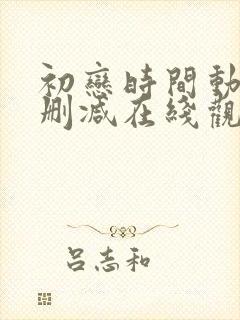 初戀時間動
刪減在綫觀
呂志和